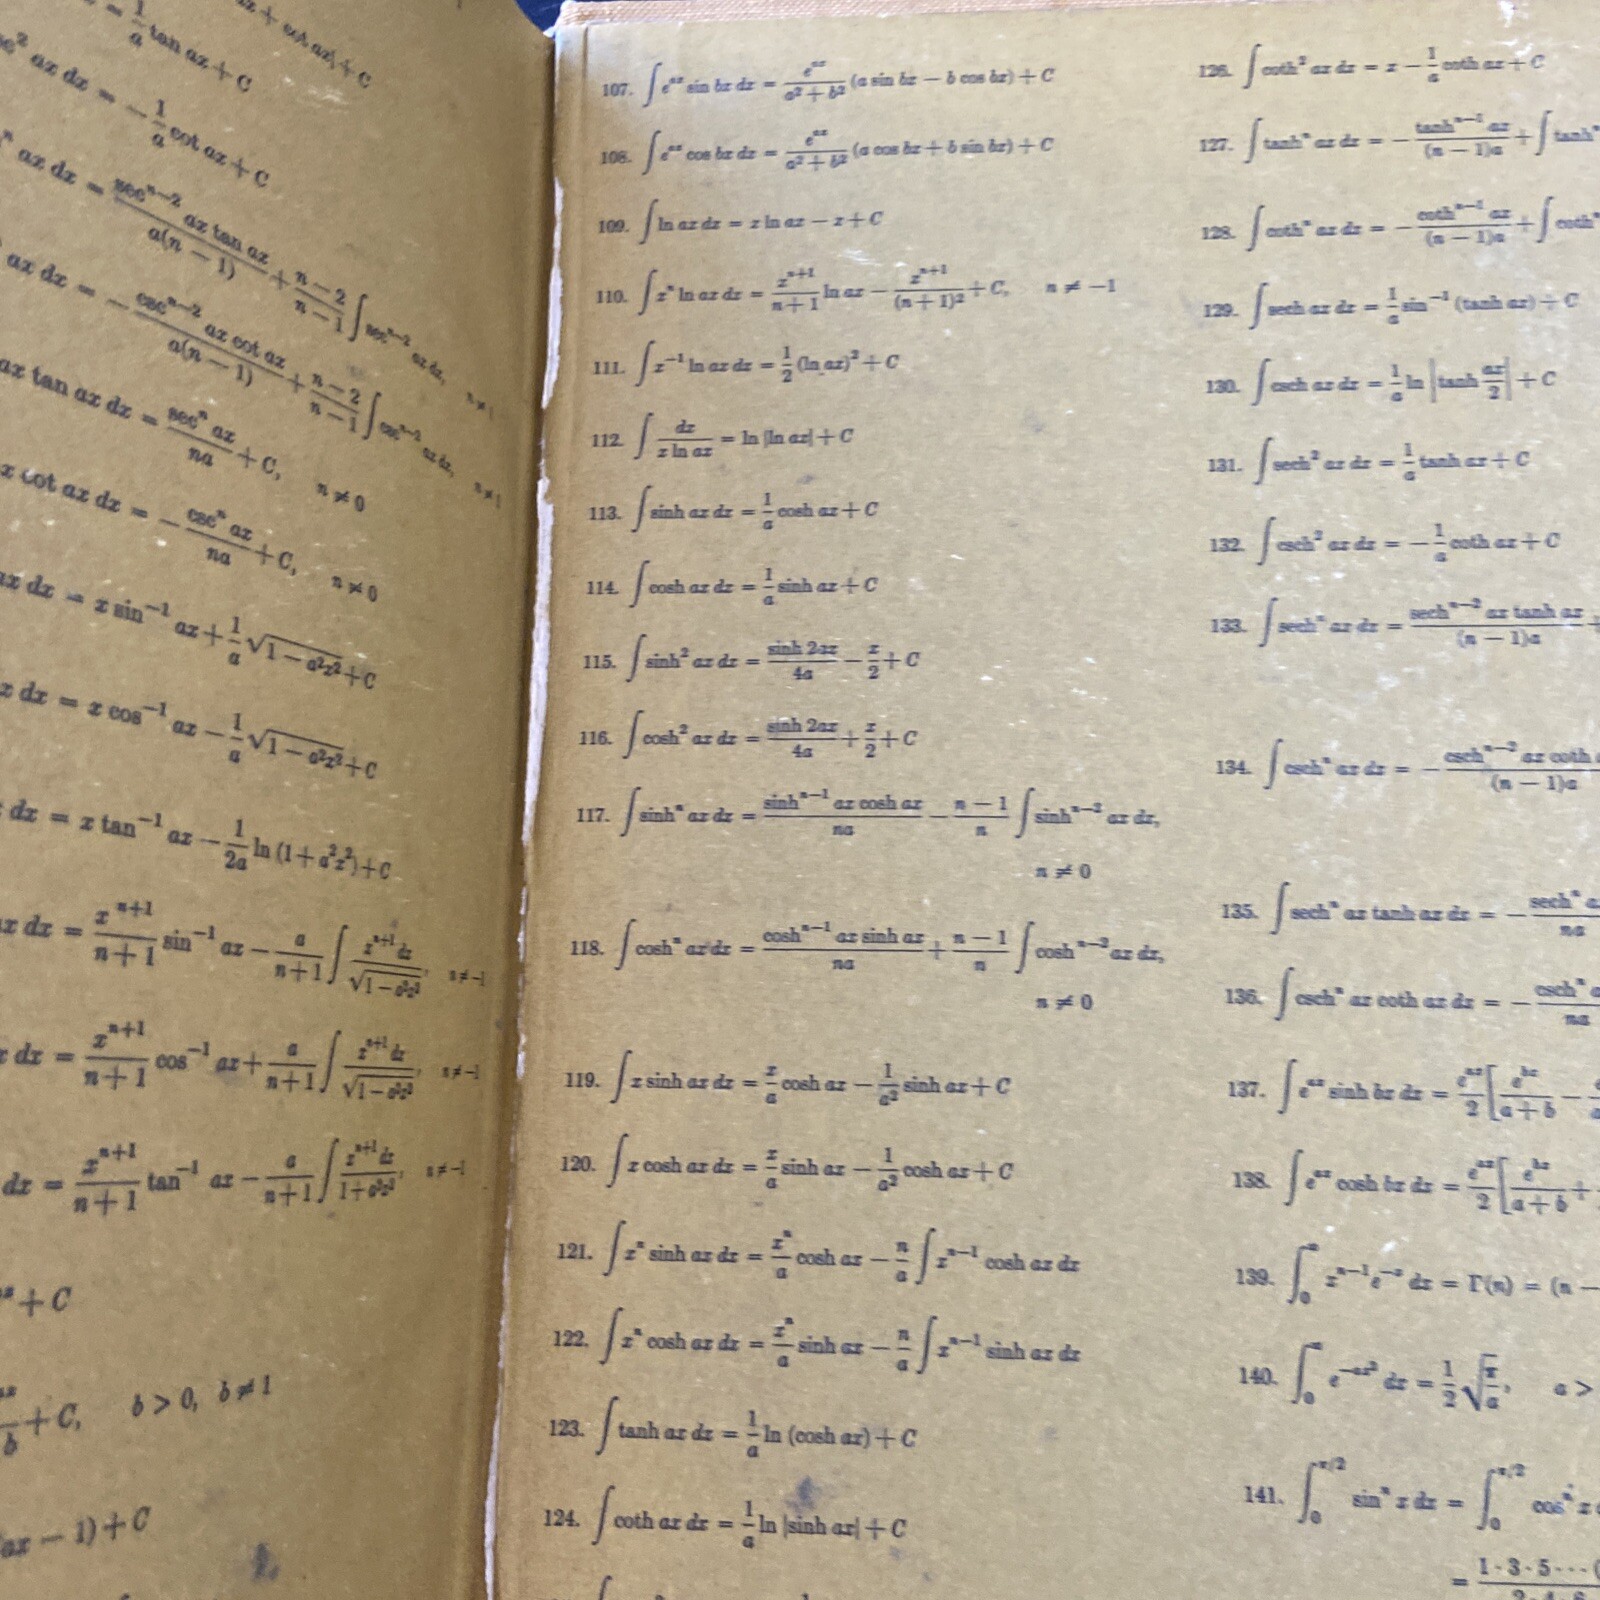 = 1/a tan ax + C
ax + cot ax| + C
ax dx = −1/a cot ax + C
ax dx = (sec^(n−2) ax tan ax)/(a(n − 1)) + (n − 2)/(n − 1) ∫ sec^(n−2) ax dx, n ≠ 1
ax dx = −(csc^(n−2) ax cot ax)/(a(n − 1)) + (n − 2)/(n − 1) ∫ csc^(n−2) ax dx, n ≠ 1
ax tan ax dx = (sec^n ax)/(na) + C, n ≠ 0
x cot ax dx = −(csc^n ax)/(na) + C, n ≠ 0
ax dx = x sin^(−1) ax + 1/a √(1 − a²x²) + C
x dx = x cos^(−1) ax − 1/a √(1 − a²x²) + C
dx = x tan^(−1) ax − 1/(2a) ln (1 + a²x²) + C
x dx = x^(n+1)/(n + 1) sin^(−1) ax − a/(n + 1) ∫ (x^(n+1) dx)/√(1 − a²x²), n ≠ −1
x dx = x^(n+1)/(n + 1) cos^(−1) ax + a/(n + 1) ∫ (x^(n+1) dx)/√(1 − a²x²), n ≠ −1
dx = x^(n+1)/(n + 1) tan^(−1) ax − a/(n + 1) ∫ (x^(n+1) dx)/(1 + a²x²), n ≠ −1
+ C
b + C, b > 0, b ≠ 1
(ax − 1) + C
107. ∫ e^(ax) sin bx dx = e^(ax)/(a² + b²) (a sin bx − b cos bx) + C
108. ∫ e^(ax) cos bx dx = e^(ax)/(a² + b²) (a cos bx + b sin bx) + C
109. ∫ ln ax dx = x ln ax − x + C
110. ∫ x^n ln ax dx = x^(n+1)/(n + 1) ln ax − x^(n+1)/(n + 1)² + C, n ≠ −1
111. ∫ x^(−1) ln ax dx = 1/2 (ln ax)² + C
112. ∫ dx/(x ln ax) = ln |ln ax| + C
113. ∫ sinh ax dx = 1/a cosh ax + C
114. ∫ cosh ax dx = 1/a sinh ax + C
115. ∫ sinh² ax dx = (sinh 2ax)/(4a) − x/2 + C
116. ∫ cosh² ax dx = (sinh 2ax)/(4a) + x/2 + C
117. ∫ sinh^n ax dx = (sinh^(n−1) ax cosh ax)/(na) − (n − 1)/n ∫ sinh^(n−2) ax dx,
n ≠ 0
118. ∫ cosh^n ax dx = (cosh^(n−1) ax sinh ax)/(na) + (n − 1)/n ∫ cosh^(n−2) ax dx,
n ≠ 0
119. ∫ x sinh ax dx = x/a cosh ax − 1/a² sinh ax + C
120. ∫ x cosh ax dx = x/a sinh ax − 1/a² cosh ax + C
121. ∫ x^n sinh ax dx = x^n/a cosh ax − n/a ∫ x^(n−1) cosh ax dx
122. ∫ x^n cosh ax dx = x^n/a sinh ax − n/a ∫ x^(n−1) sinh ax dx
123. ∫ tanh ax dx = 1/a ln (cosh ax) + C
124. ∫ coth ax dx = 1/a ln |sinh ax| + C
126. ∫ coth² ax dx = x − 1/a coth ax + C
127. ∫ tanh^n ax dx = −(tanh^(n−1) ax)/((n − 1)a) + ∫ tanh
128. ∫ coth^n ax dx = −(coth^(n−1) ax)/((n − 1)a) + ∫ coth
129. ∫ sech ax dx = 1/a sin^(−1) (tanh ax) + C
130. ∫ csch ax dx = 1/a ln |tanh ax/2| + C
131. ∫ sech² ax dx = 1/a tanh ax + C
132. ∫ csch² ax dx = −1/a coth ax + C
133. ∫ sech^n ax dx = (sech^(n−2) ax tanh ax)/((n − 1)a) +
134. ∫ csch^n ax dx = −(csch^(n−2) ax coth)/((n − 1)a)
135. ∫ sech^n ax tanh ax dx = −(sech^n a)/(na)
136. ∫ csch^n ax coth ax dx = −(csch^n a)/(na)
137. ∫ e^(ax) sinh bx dx = e^(ax)/2 [e^(bx)/(a + b) −
138. ∫ e^(ax) cosh bx dx = e^(ax)/2 [e^(bx)/(a + b) +
139. ∫₀^∞ x^(n−1) e^(−x) dx = Γ(n) = (n −
140. ∫₀^∞ e^(−ax²) dx = 1/2 √(π/a), a >
141. ∫₀^(π/2) sin^n x dx = ∫₀^(π/2) cos^n x
= 1 · 3 · 5 · · · (
2 · 4 · 6